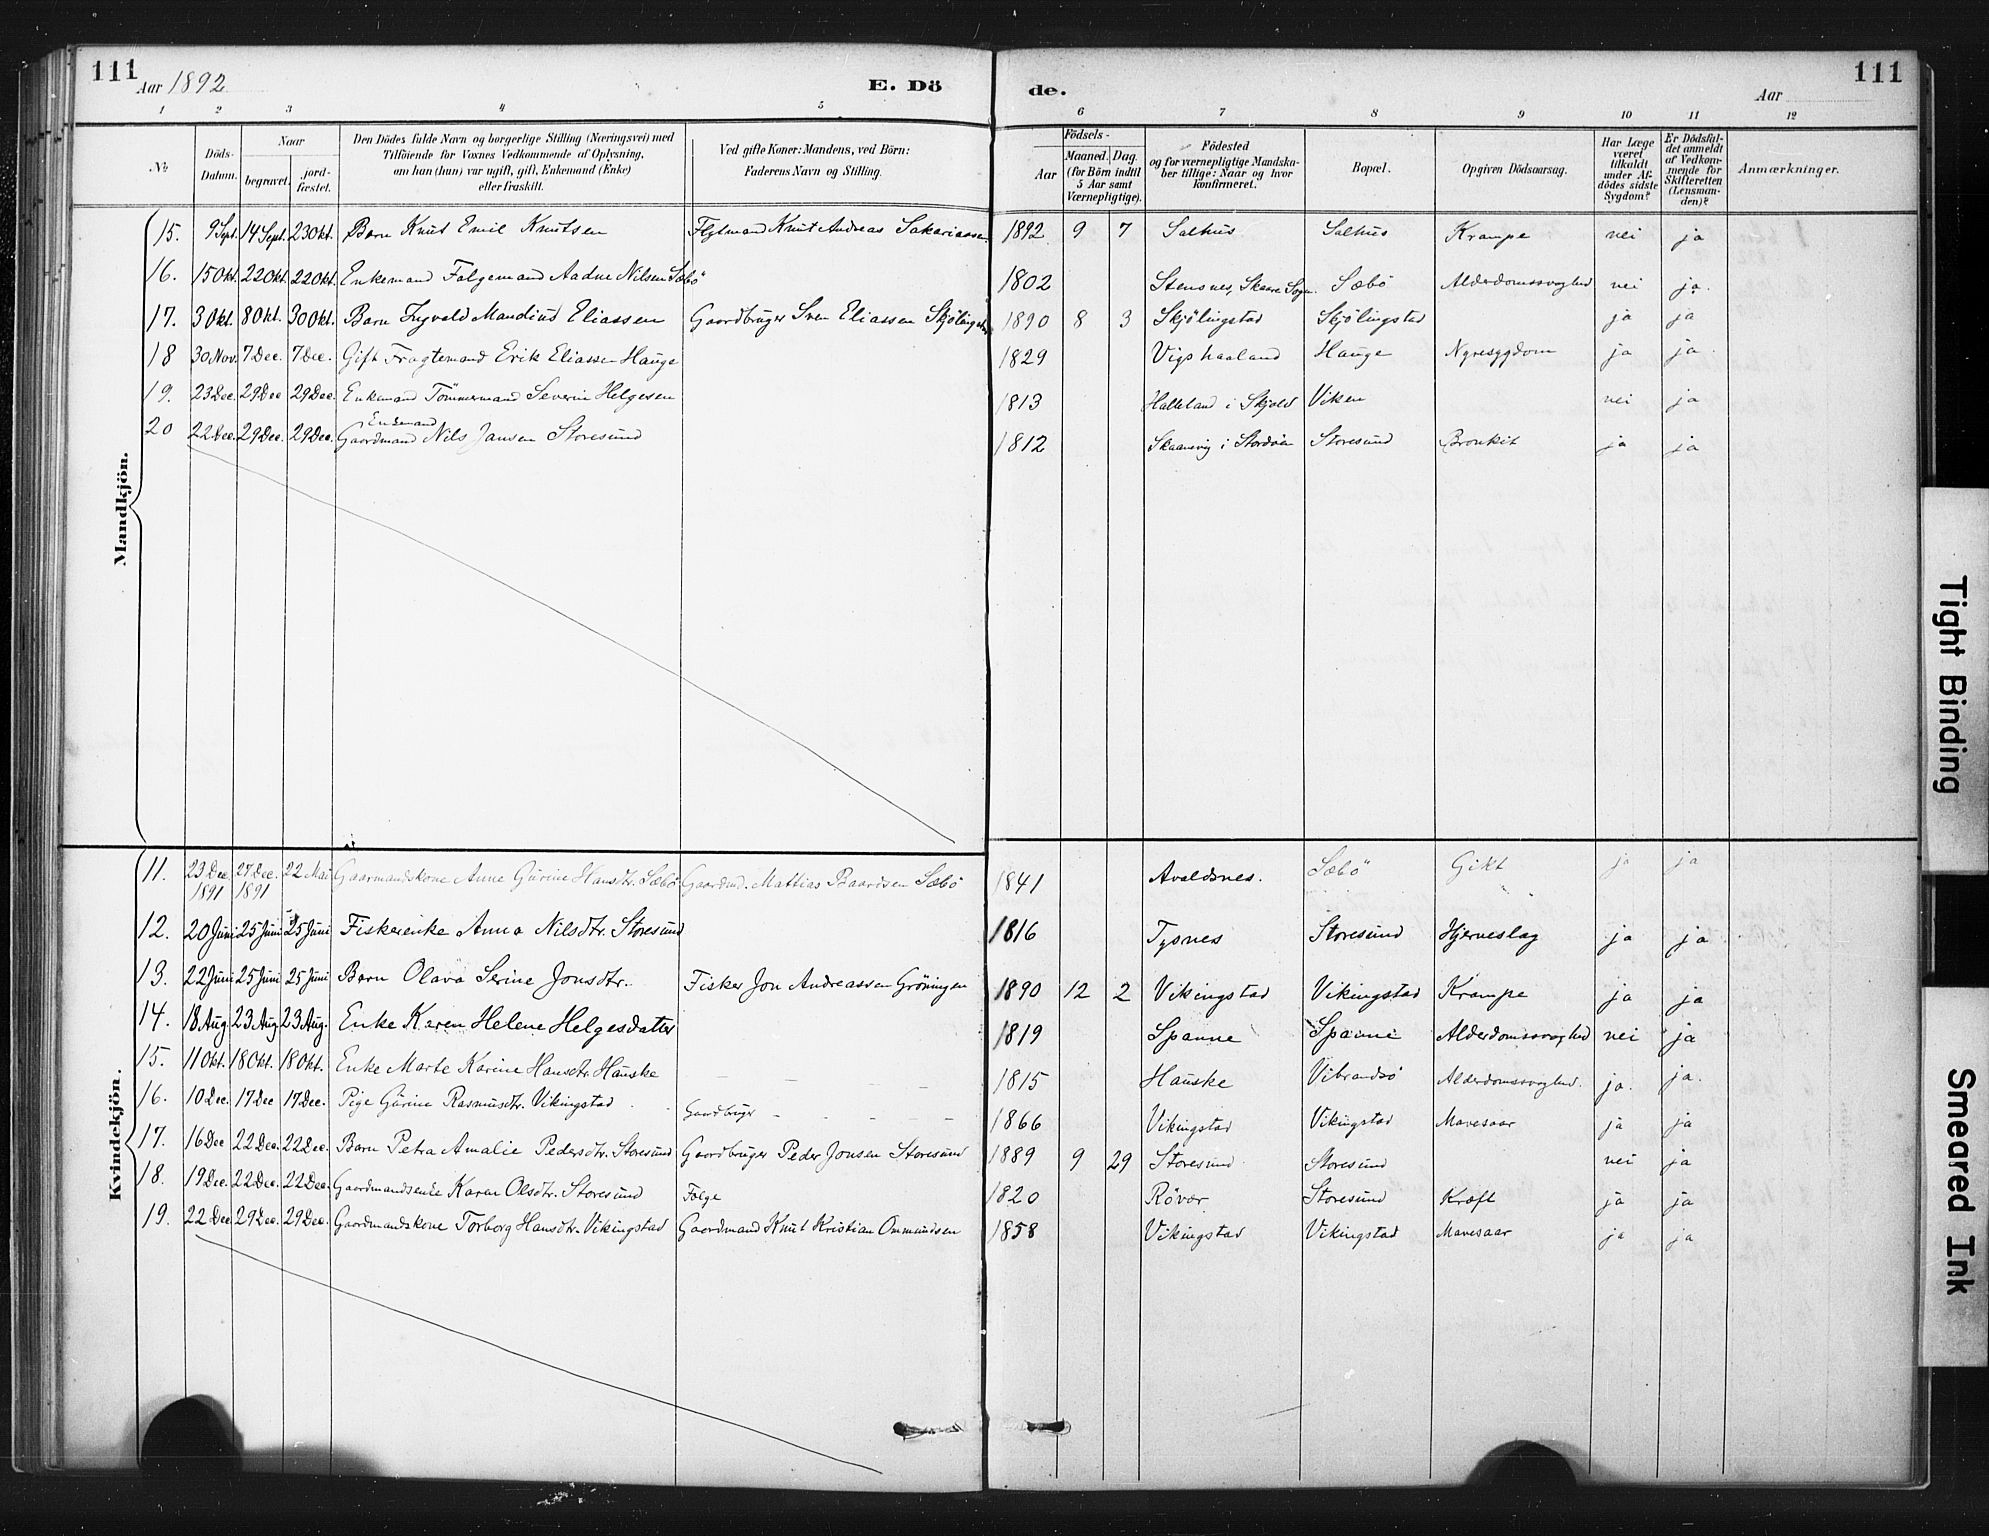 111
Aar 1892
E. Dö
de.
Aar
111
1 2 3 4 5 6 7 8 9 10 11 12
No
Döds-Datum.
Naar
begravet.
jordfæstet.
Den Dödes fulde Navn og borgerlige Stilling (Næringsvei) med
Tilföiende for Voxnes Vedkommende af Oplysning,
om han (hun) var ugift, gift, Enkemand (Enke)
eller fraskilt.
Ved gifte Koner: Mandens, ved Börn:
Faderens Navn og Stilling.
Födsels-
Aar
Maaned. Dag.
(for Börn indtil
5 Aar samt
Værnepligtige).
Födested
og for værnepligtige Mandskaber
tillige: Naar og hvor
konfirmeret.
Bopæl.
Opgiven Dödsaarsag.
Har Læge
været
tilkaldt
under Afdödes
sidste
Sygdom?
Er Dödsfaldet
anmeldt
af Vedkommende
for
Skifteretten
(Lensmanden)?
Anmærkninger.
Mandkjön.
15. 9 Sept. 14 Sept. 23 Okt. Barn Knut Emil Knutsen Knut Andreas Sakariassen 1892 9 7 Salhus Salhus Krampe nei ja
16. 15 Okt. 22 Okt. 22 Okt. Enkemand Folgemand Aadne Nilsen Sæbö 1802 Stensnes, Skaare Sogn. Sæbö Alderdomssvaghed nei ja.
17. 3 Okt. 8 Okt. 30 Okt. Barn Ingvald Mandius Eliassen Gaardbruger Sven Eliassen 1890 8 3 Skjölingstad Skjölingstad ja ja
18 30 Nov. 7 Dec. 7 Dec. Gift Fragtemand Erik Eliassen Hauge 1829 Vigshaaland Hauge Nyresygdom ja ja
19. 23 Dec. 29 Dec 29 Dec. Enkemand Tömmermand Severin Helgesen 1813 Halleland i Skjold Viken nei ja
20 22 Dec. 29 Dec. 29 Dec. Enkemand Gaardmand Nils Jansen Storesund 1812 i Stordöen Storesund Bronkit ja ja
Kvindekjön.
11. 23 Dec 1891 27 Dec. 1891 22 Mai Gaarmandskone Anne Gurine Hansdtr. Sæbö Gaardmd. Mattias Baardsen Sæbö 1841 Avaldsnes. Sæbö Gikt ja ja
12. 20 Juni 25 Juni 25 Juni Fiskerenke Anna Nilsdtr. Storesund 1816 Tysnes Storesund Hjerneslag ja ja
13. 22 Juni 25 Juni 25 Juni Barn Olava Serine Jonsdtr. Fisker Jon Andreassen Gröningen 1890 12 2 Vikingstad Vikingstad Krampe ja ja
14. 18 Aug 23 Aug 23 Aug. Enke Karen Helene Helgesdatter 1819 Spanne Spanne Alderdomssvaghed nei ja
15. 11 Okt. 18 Okt. 18 Okt. Enke Marte Karine Hansdtr. Hauske 1815 Hauske Vibrandsö Alderdomssvaghed. ja. ja.
16. 10 Dec. 17 Dec 17 Dec. Pige Gurine Rasmusdtr. Vikingstad Gaardbruger 1866 Vikingstad Vikingstad Mavesaar ja ja
17. 16 Dec 22 Dec. 22 Dec. Barn Petra Amalie Pedersdtr. Storesund Gaardbruger Peder Jonsen Storesund 1889 9 29 Storesund Storesund nei ja
18. 19 Dec. 22 Dec. 22 Dec. Gaardmandsenke Karen Olsdtr. Storesund Folge 1820 Rövær Storesund Kræft ja ja
19. 22 Dec 29 Dec. 29 Dec. Gaardmandskone Torborg Hansdtr. Vikingstad Gaardmand Knut Kristian Ommundsen 1858 Vikingstad Vikingstad Mavesaar ja ja
Tight Binding
Smeared Ink